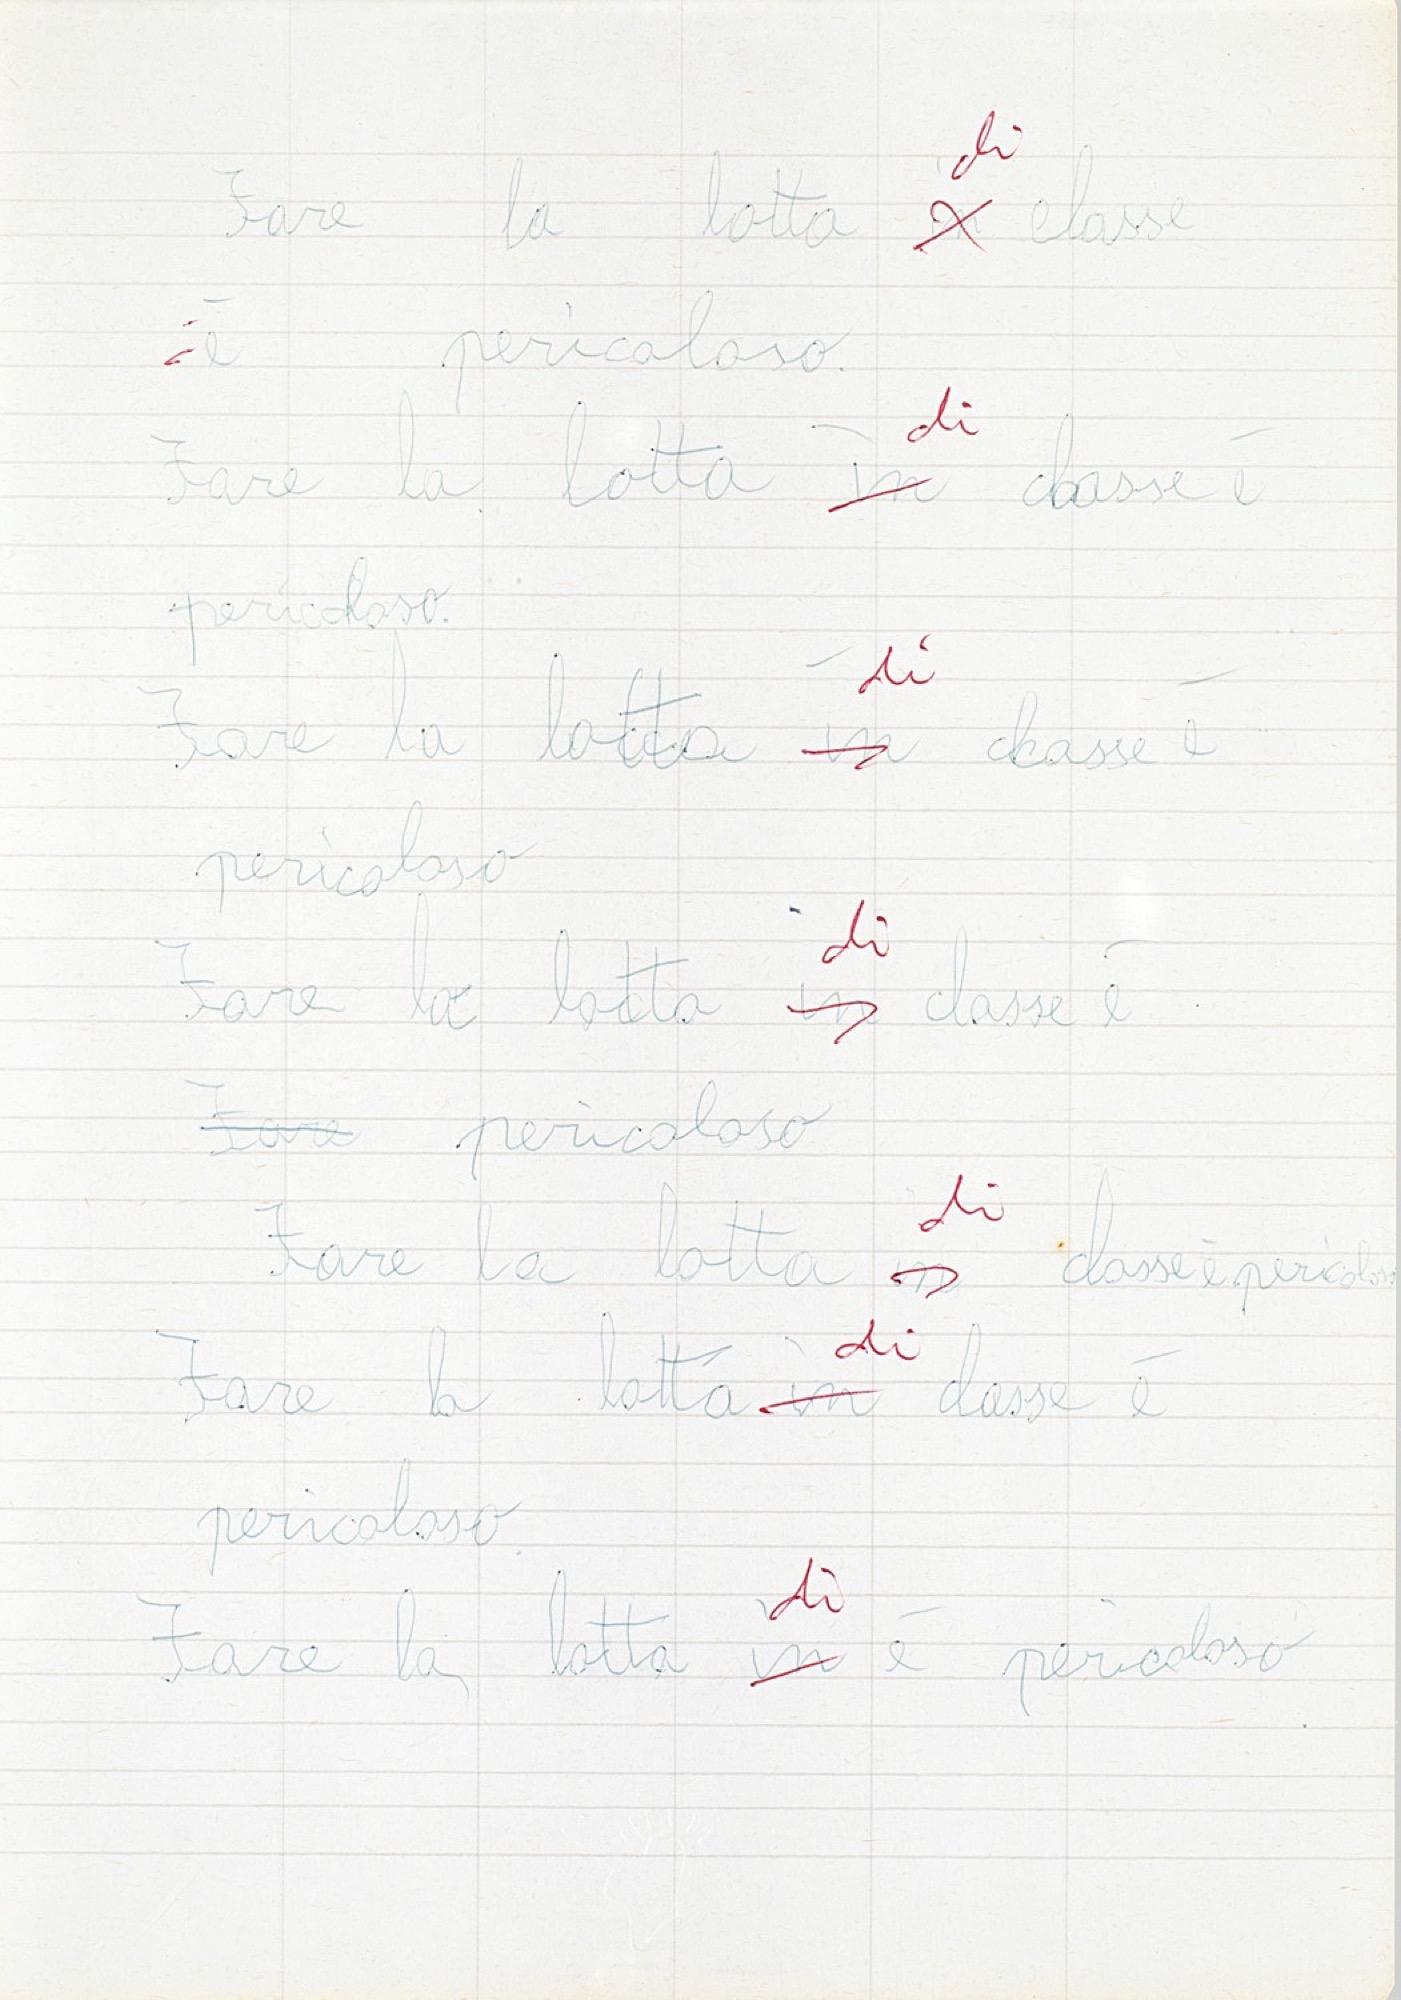 di
Fare la lotta in classe
è pericoloso.
di
Fare la lotta in classe è
pericoloso.
di
Fare la lotta in classe è
pericoloso
di
Fare la lotta in classe è
Fare pericoloso
di
Fare la lotta in classe è pericoloso
di
Fare la lotta in classe è
pericoloso
di
Fare la lotta in è pericoloso